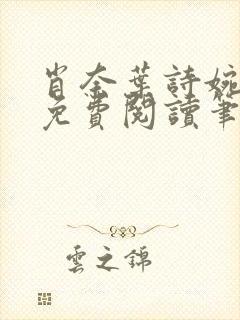 肖奈葉詩婉
免費閱讀筆
雲之錦